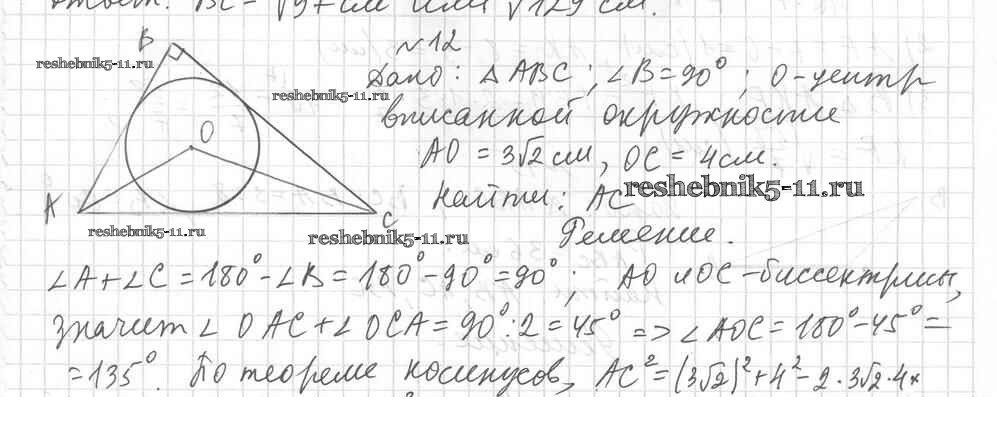 Ответ: BC = √97 см или √129 см.
B
N12
reshebnik5-11.ru
Дано: △ABC; ∠B=90°; O-центр
reshebnik5-11.ru
вписанной окружности
O
AO = 3√2 см, OC = 4 см.
reshebnik5-11.ru
Найти: AC
A
C
reshebnik5-11.ru
reshebnik5-11.ru
Решение.
∠A+∠C = 180°-∠B = 180°-90°=90°; AO и OC-биссектрисы,
значит ∠OAC+∠OCA = 90°:2 = 45° => ∠AOC = 180°-45° =
= 135°. По теореме косинусов, AC² = (3√2)²+4²-2·3√2·4×